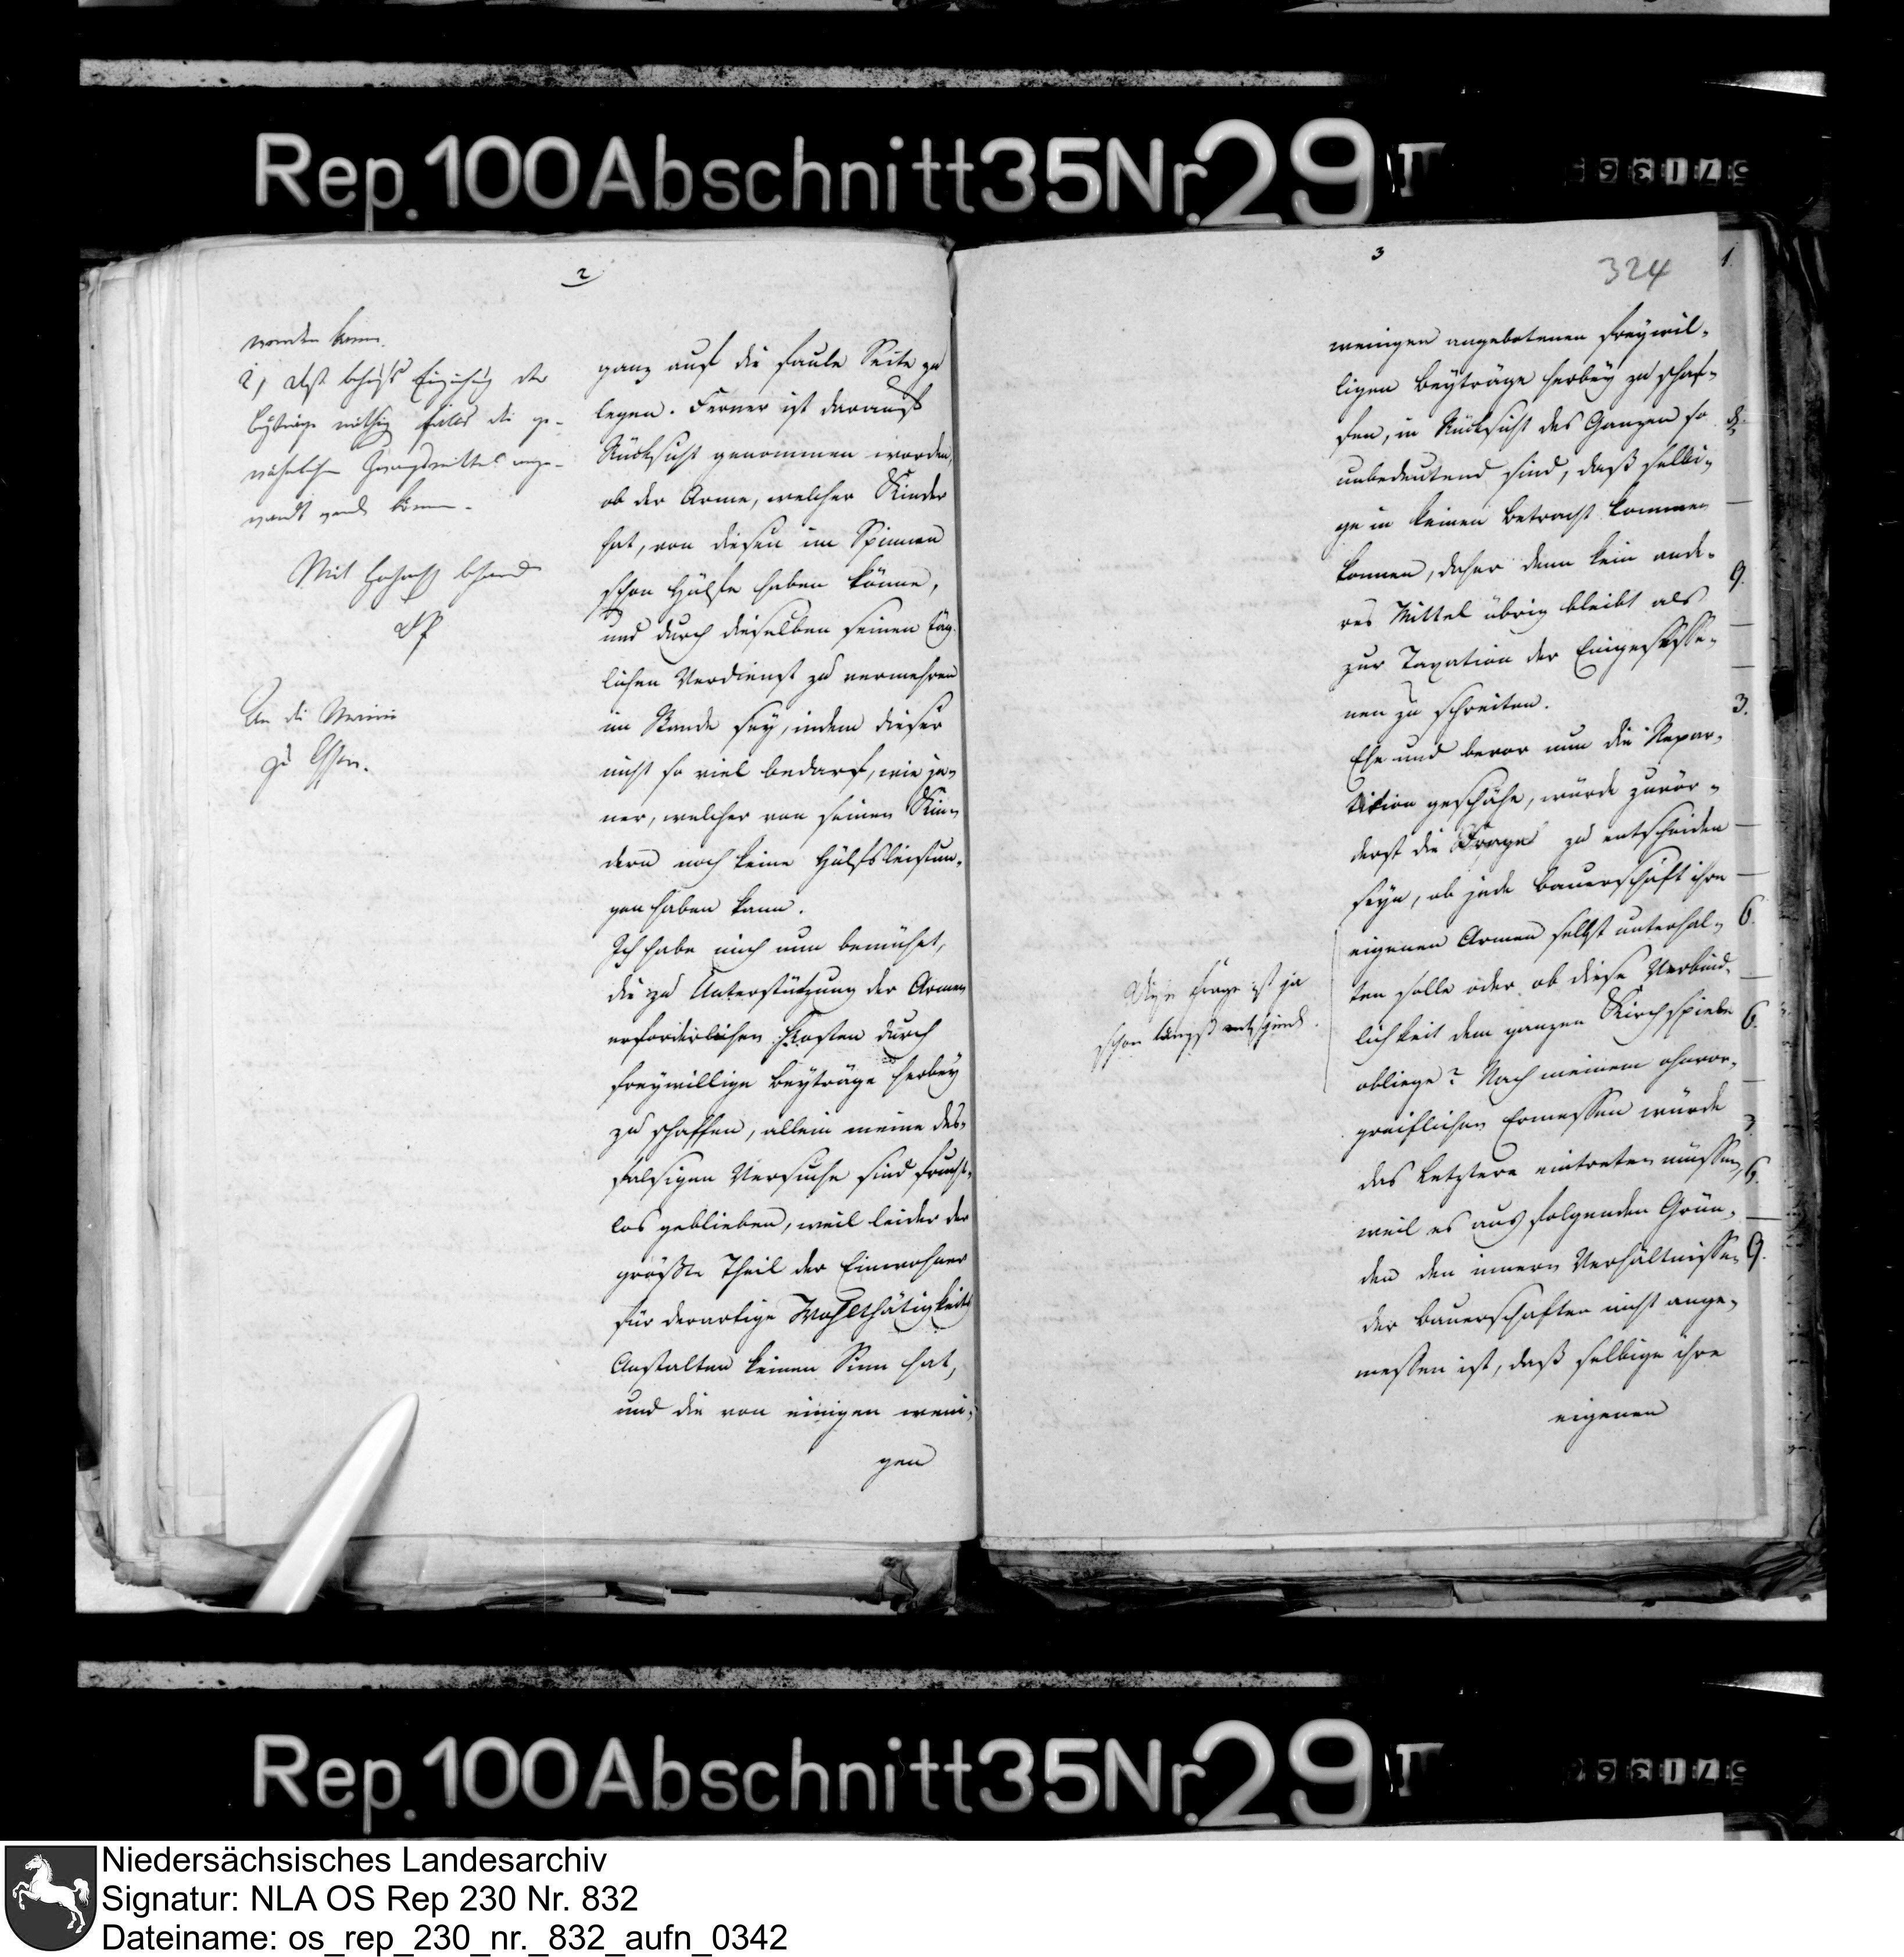 Rep. 100 Abschnitt 35 Nr. 29 II
2
werden kann.
2, daß behufs Einziehung der
Beyträge nöthigen Falles die ge-
wöhnlichen Zwangsmittel ange-
wandt werden können.
Mit Hochachtung
An die Mairie
zu Essen.
ganz auf die faule Seite zu
legen. Ferner ist darauf
Rücksicht genommen worden,
ob der Arme, welcher Kinder
hat, von diesen im Spinnen
schon Hülfe haben könne,
und durch dieselben seinen täg-
lichen Verdienst zu vermehren
im Stande sey, indem dieser
nicht so viel bedarf, wie je-
ner, welcher von seinen Kin-
dern noch keine Hülfsleistun-
gen haben kann.
Ich habe mich nun bemühet,
die zu Unterstützung der Armen
erforderlichen Kosten durch
freywillige Beyträge herbey
zu schaffen, allein meine des-
falsigen Versuche sind frucht-
los geblieben, weil leider der
größte Theil der Einwohner
für derartige Wohlthätigkeits
Anstalten keinen Sinn hat,
und die von einigen weni-
gen
3
324
1
wenigen angebotenen freywil-
ligen Beyträge herbey zu schaf-
fen, in Rücksicht des Ganzen so
unbedeutend sind, daß selbi-
ge in keinen Betracht kommen
konnen, daher denn kein ande-
res Mittel übrig bleibt als
zur Taxation der Eingesesse-
nen zu schreiten.
Ehe und bevor nun die Repar-
tition geschähe, würde zuvör-
derst die Frage zu entscheiden
seyn, ob jede Bauerschaft ihre
eigenen Armen selbst unterhal-
ten solle oder ob diese Verbind-
lichkeit dem ganzen Kirchspiele
obliege? Nach meinem ohnvor-
greiflichen Ermessen würde
das Letztere eintreten müssen,
weil es aus folgenden Grün-
den den innern Verhältnissen
der Bauerschaften nicht ange-
messen ist, daß selbige ihre
eigenen
Diese Frage ist ja
schon längst entschieden.
9.
3.
6.
6.
6.
9.
Rep. 100 Abschnitt 35 Nr. 29 II
Niedersächsisches Landesarchiv
Signatur: NLA OS Rep 230 Nr. 832
Dateiname: os_rep_230_nr._832_aufn_0342